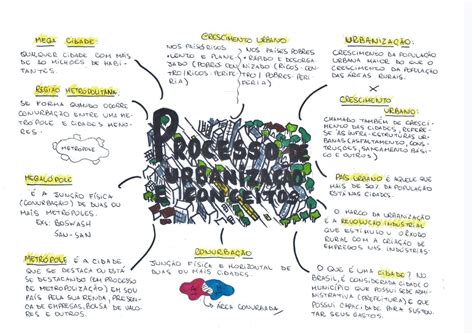 MEGA CIDADE
QUALQUER CIDADE COM MAIS
DE 10 MILHÕES DE HABI-
TANTES.
REGIÃO METROPOLITANA
SE FORMA QUANDO OCORRE
CONURBAÇÃO ENTRE UMA ME-
TRÓPOLE E CIDADES MENO-
RES.
METRÓPOLE
MEGALÓPOLE
É A JUNÇÃO FÍSICA
(CONURBAÇÃO) DE DUAS OU
MAIS METRÓPOLES.
EX: BOSWASH
SAN-SAN
METRÓPOLE É A CIDADE
QUE SE DESTACA OU ESTÁ
SE DESTACANDO (EM PROCESSO
DE METROPOLIZAÇÃO) EM SEU
PAÍS PELA SUA RENDA, PRESEN-
ÇA DE EMPRESAS, BOLSA DE VALO-
RES E OUTROS.
CRESCIMENTO URBANO
NOS PAÍSES RICOS
LENTO E PLANE-
JADO (POBRES CON-
TRO/RICOS-PERIFE-
RIA)
NOS PAÍSES POBRES
RÁPIDO E DESORGA-
NIZADO (RICOS-CEN-
TRO/POBRES-PERI-
FERIA)
PROCESSO DE
URBANIZAÇÃO
E CONCEITOS
CONURBAÇÃO
JUNÇÃO FÍSICA E HORIZONTAL DE
DUAS OU MAIS CIDADES.
ÁREA CONURBADA
URBANIZAÇÃO:
CRESCIMENTO DA POPULAÇÃO
URBANA MAIOR DO QUE O
CRESCIMENTO DA POPULAÇÃO
DAS ÁREAS RURAIS.
X
CRESCIMENTO
URBANO:
CHAMADO TAMBÉM DE CRESCI-
MENTO DAS CIDADES, REFERE-
SE ÀS INFRA-ESTRUTURAS UR-
BANAS (ASFALTAMENTO, CONS-
TRUÇÕES, SANEAMENTO BÁSI-
CO E OUTROS)
PAÍS URBANO É AQUELE QUE
MAIS DE 50% DA POPULAÇÃO
ESTÁ NAS CIDADES.
O MARCO DA URBANIZAÇÃO
É A REVOLUÇÃO INDUSTRIAL
QUE ESTIMULOU O ÊXODO
RURAL COM A CRIAÇÃO DE
EMPREGOS NAS INDÚSTRIAS.
O QUE É UMA CIDADE? NO
BRASIL, É CONSIDERADA CIDADE O
MUNICÍPIO QUE POSSUI SEDE ADMI-
NISTRATIVA (PREFEITURA) E QUE
POSSUI CAPACIDADE PARA SUSTEN-
TAR SEUS GASTOS.